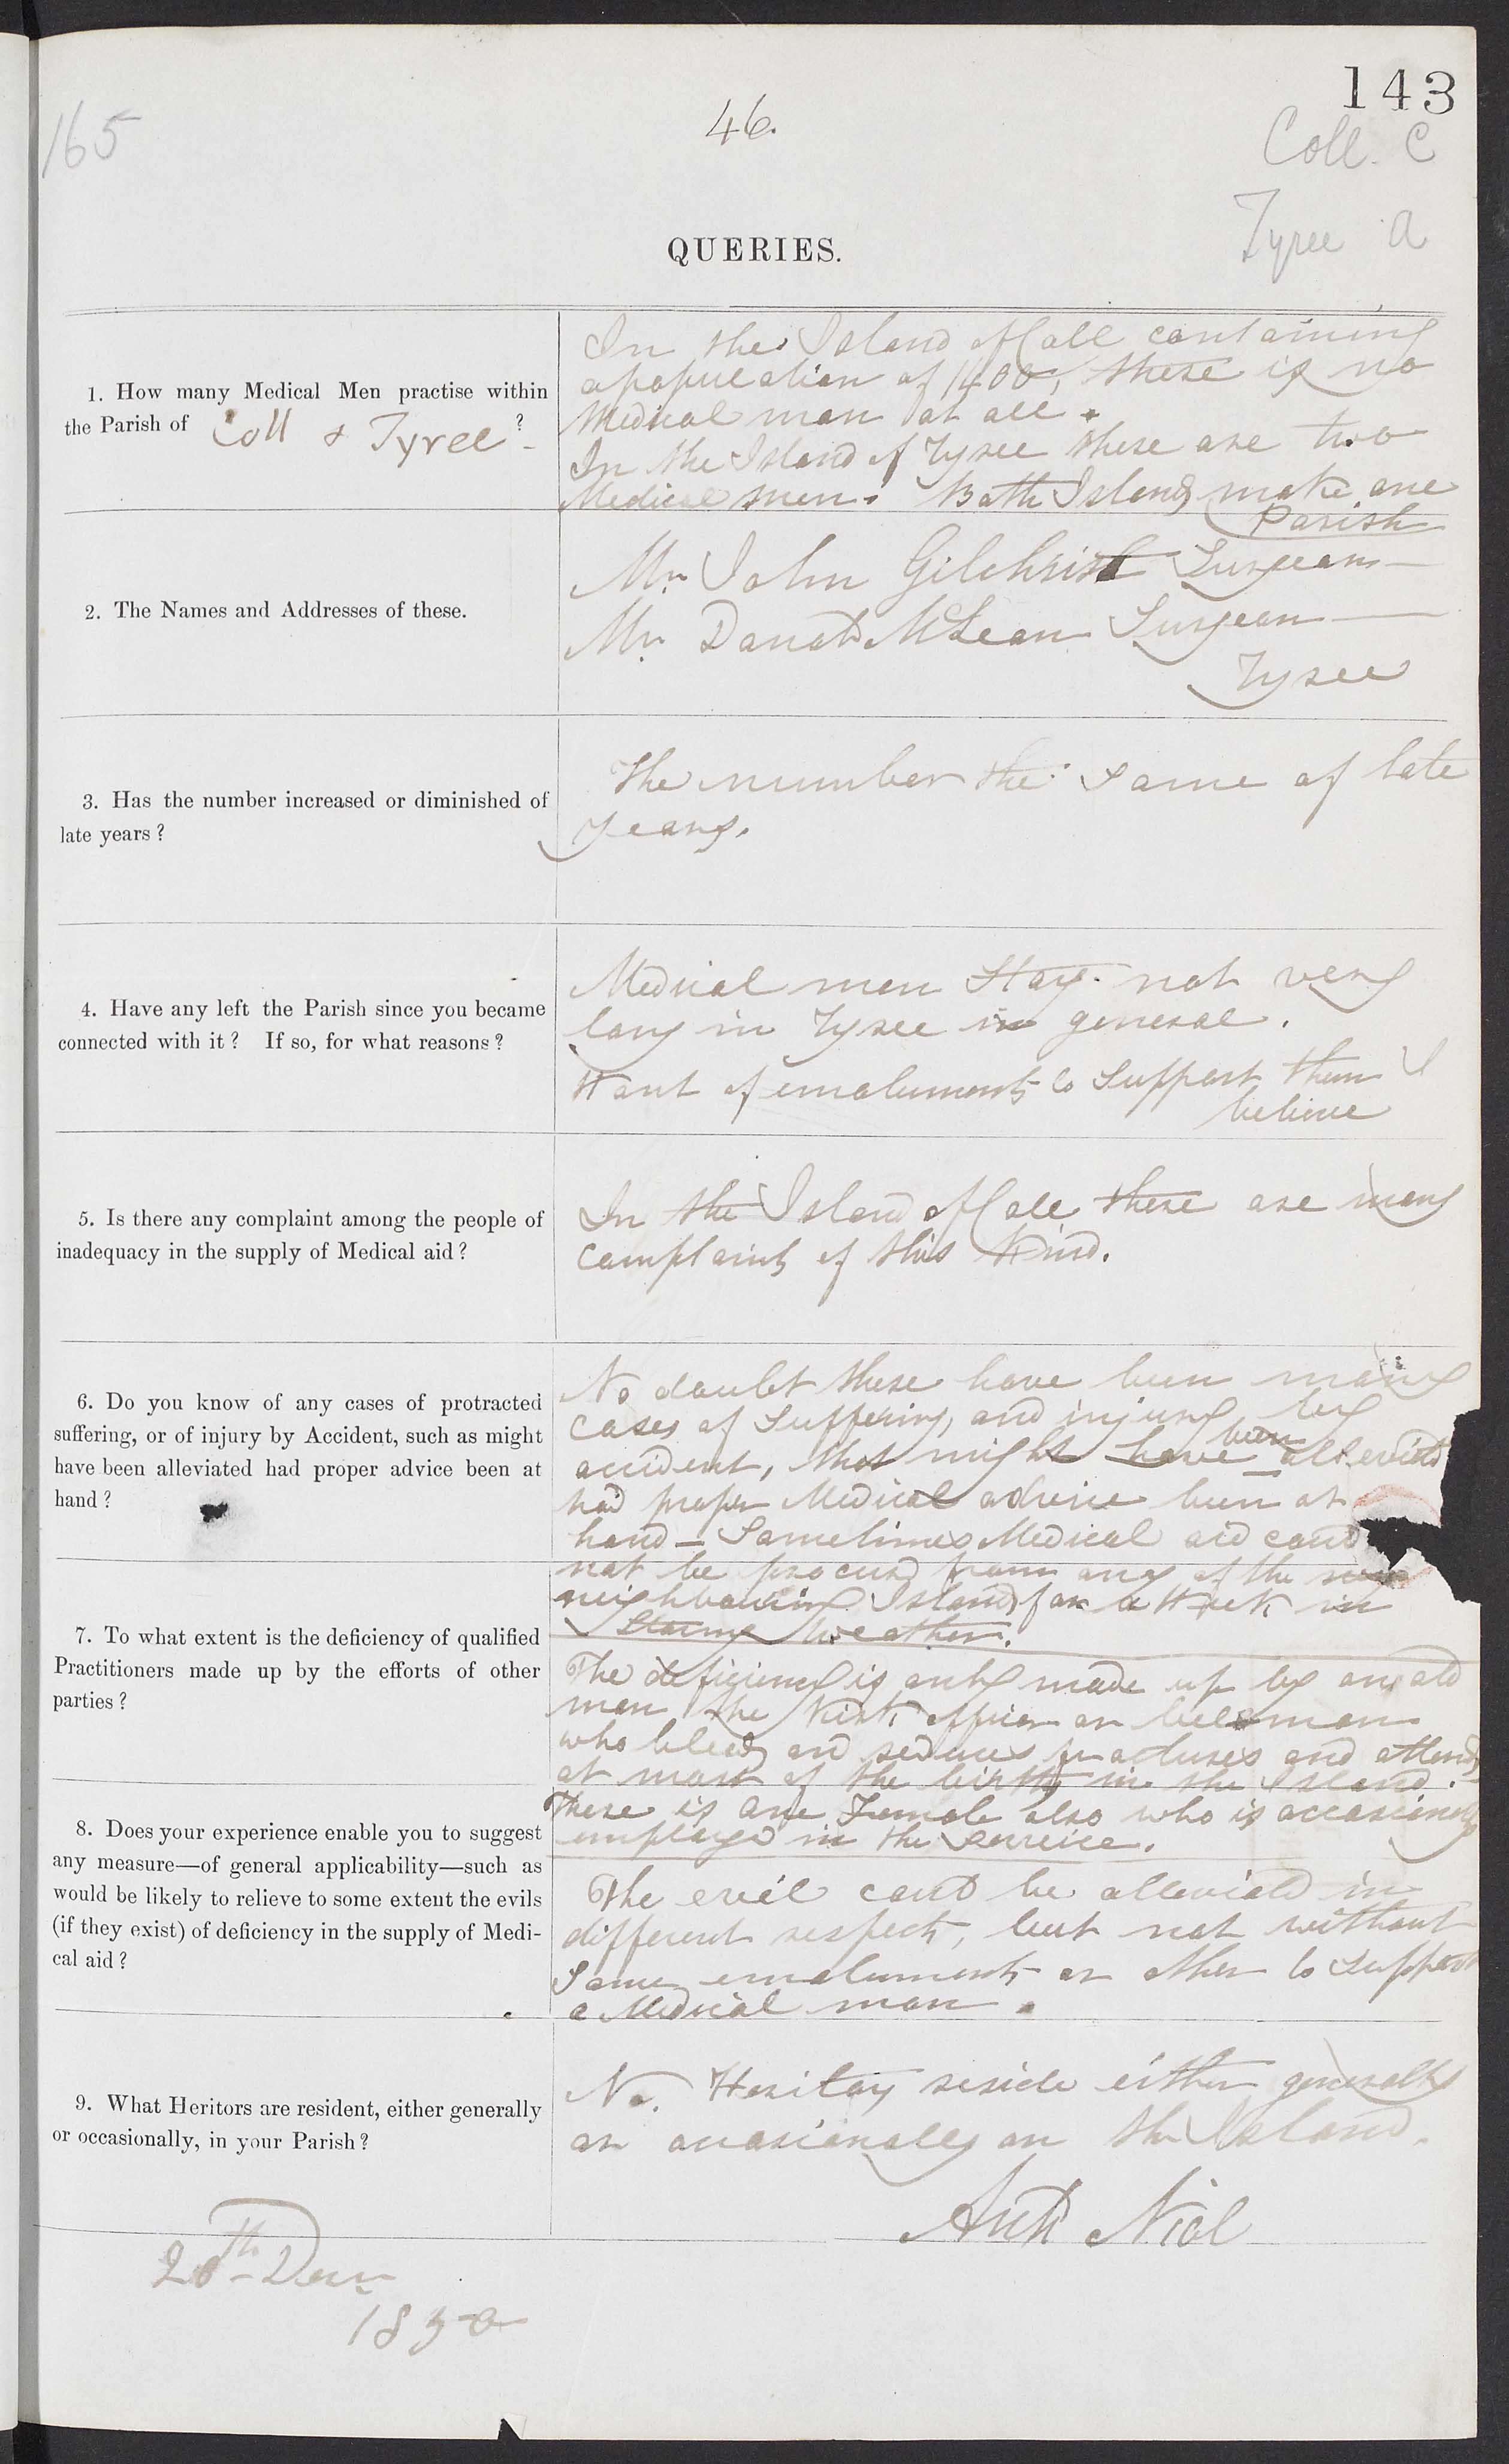 143
165
46.
Coll. C
Tyree a
QUERIES.
1. How many Medical Men practise within
the Parish of Coll & Tyree ?
In the Island of Coll containing
a population of 1400, there is no
Medical man at all.
In the Island of Tyree there are two
Medical men. Both Islands make one
Parish
2. The Names and Addresses of these.
Mr. John Gilchrist Surgeon
Mr. Donald McLean Surgeon
Tyree
3. Has the number increased or diminished of
late years?
The number the same of late
years.
4. Have any left the Parish since you became
connected with it? If so, for what reasons?
Medical men Stay not very
long in Tyree in general.
Want of emoluments to Support them I
believe
5. Is there any complaint among the people of
inadequacy in the supply of Medical aid?
In the Island of Coll there are many
complaints of this Kind.
6. Do you know of any cases of protracted
suffering, or of injury by Accident, such as might
have been alleviated had proper advice been at
hand?
No doubt there have been many
cases of Suffering, and injury by
accident, that might have been alleviated
had proper Medical advice been at
hand – Sometimes Medical aid could
not be procured from any of the
neighbouring Islands for a Week in
Stormy Weather.
7. To what extent is the deficiency of qualified
Practitioners made up by the efforts of other
parties?
The deficiency is only made up by an old
man the Kirk officer or bellman
who bleeds and reduces fractures and attends
at most of the births in the Island.
There is one Female also who is occasionally
employed in the Service.
8. Does your experience enable you to suggest
any measure—of general applicability—such as
would be likely to relieve to some extent the evils
(if they exist) of deficiency in the supply of Medi-
cal aid?
The evil could be alleviated in
different respects, but not without
Some emoluments or other to Support
a Medical man.
9. What Heritors are resident, either generally
or occasionally, in your Parish?
No. Heritors reside either generally
or occasionally on the Island.
Archd Nicol
20th Decr
1850